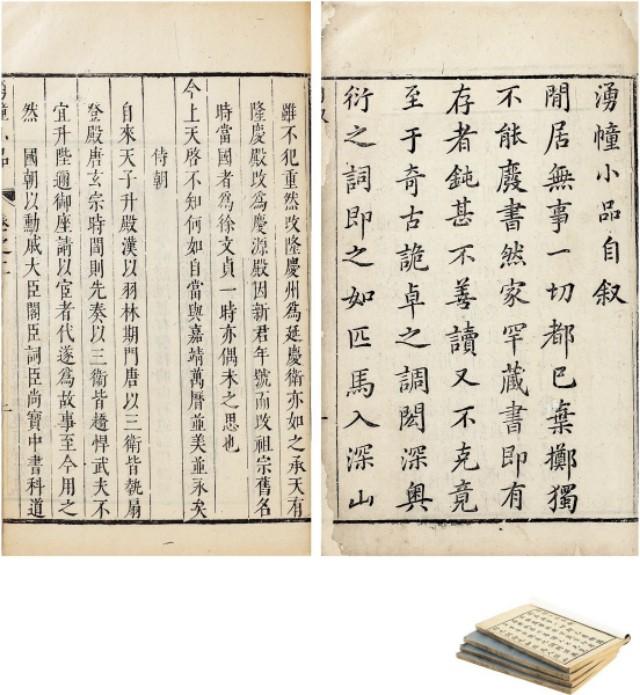 湧幢小品自叙
閒居無事一切都已棄擲獨
不能廢書然家罕藏書即有
存者鈍甚不善讀又不克竟
至于奇古詭卓之調閎深奧
衍之詞即之如匹馬入深山
雖不犯重然改隆慶州爲延慶衛亦如之承天有
隆慶殿改爲慶源殿因新君年號而改祖宗舊名
時當國者爲徐文貞一時亦偶未之思也
今上天啓不知何如自當與嘉靖萬曆並美並永矣
侍朝
自來天子升殿漢以羽林期門唐以三衛皆執扇
登殿唐玄宗時間則先奏以三衛皆趫悍武夫不
宜升陛邇御座請以宦者代遂爲故事至今用之
然 國朝以勳戚大臣閣臣詞臣尚寶中書科道
小品